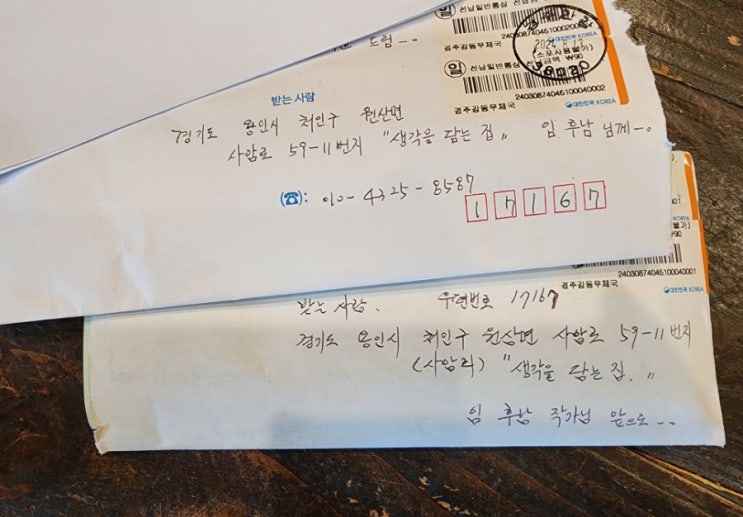 드림
선납일반통상
240308740451000200
(소포사용불가)
대한민국 KOREA
일 선납일반통상 선납금액 ₩90
240308740451000400​02
경주감동우체국
대한민국 KOREA
38020
받는 사람
경기도 용인시 처인구 원삼면
사암로 59-11번지 "생각을 담는 집" 임후남 님께
☎: 010-4325-8587
17167
₩90
24030874045100040001
경주감동우체국
대한민국 KOREA
받는 사람. 우편번호 17167
경기도 용인시 처인구 원삼면 사암로 59-11번지
(사암리) "생각을 담는 집."
임 후남 작가님 앞으로